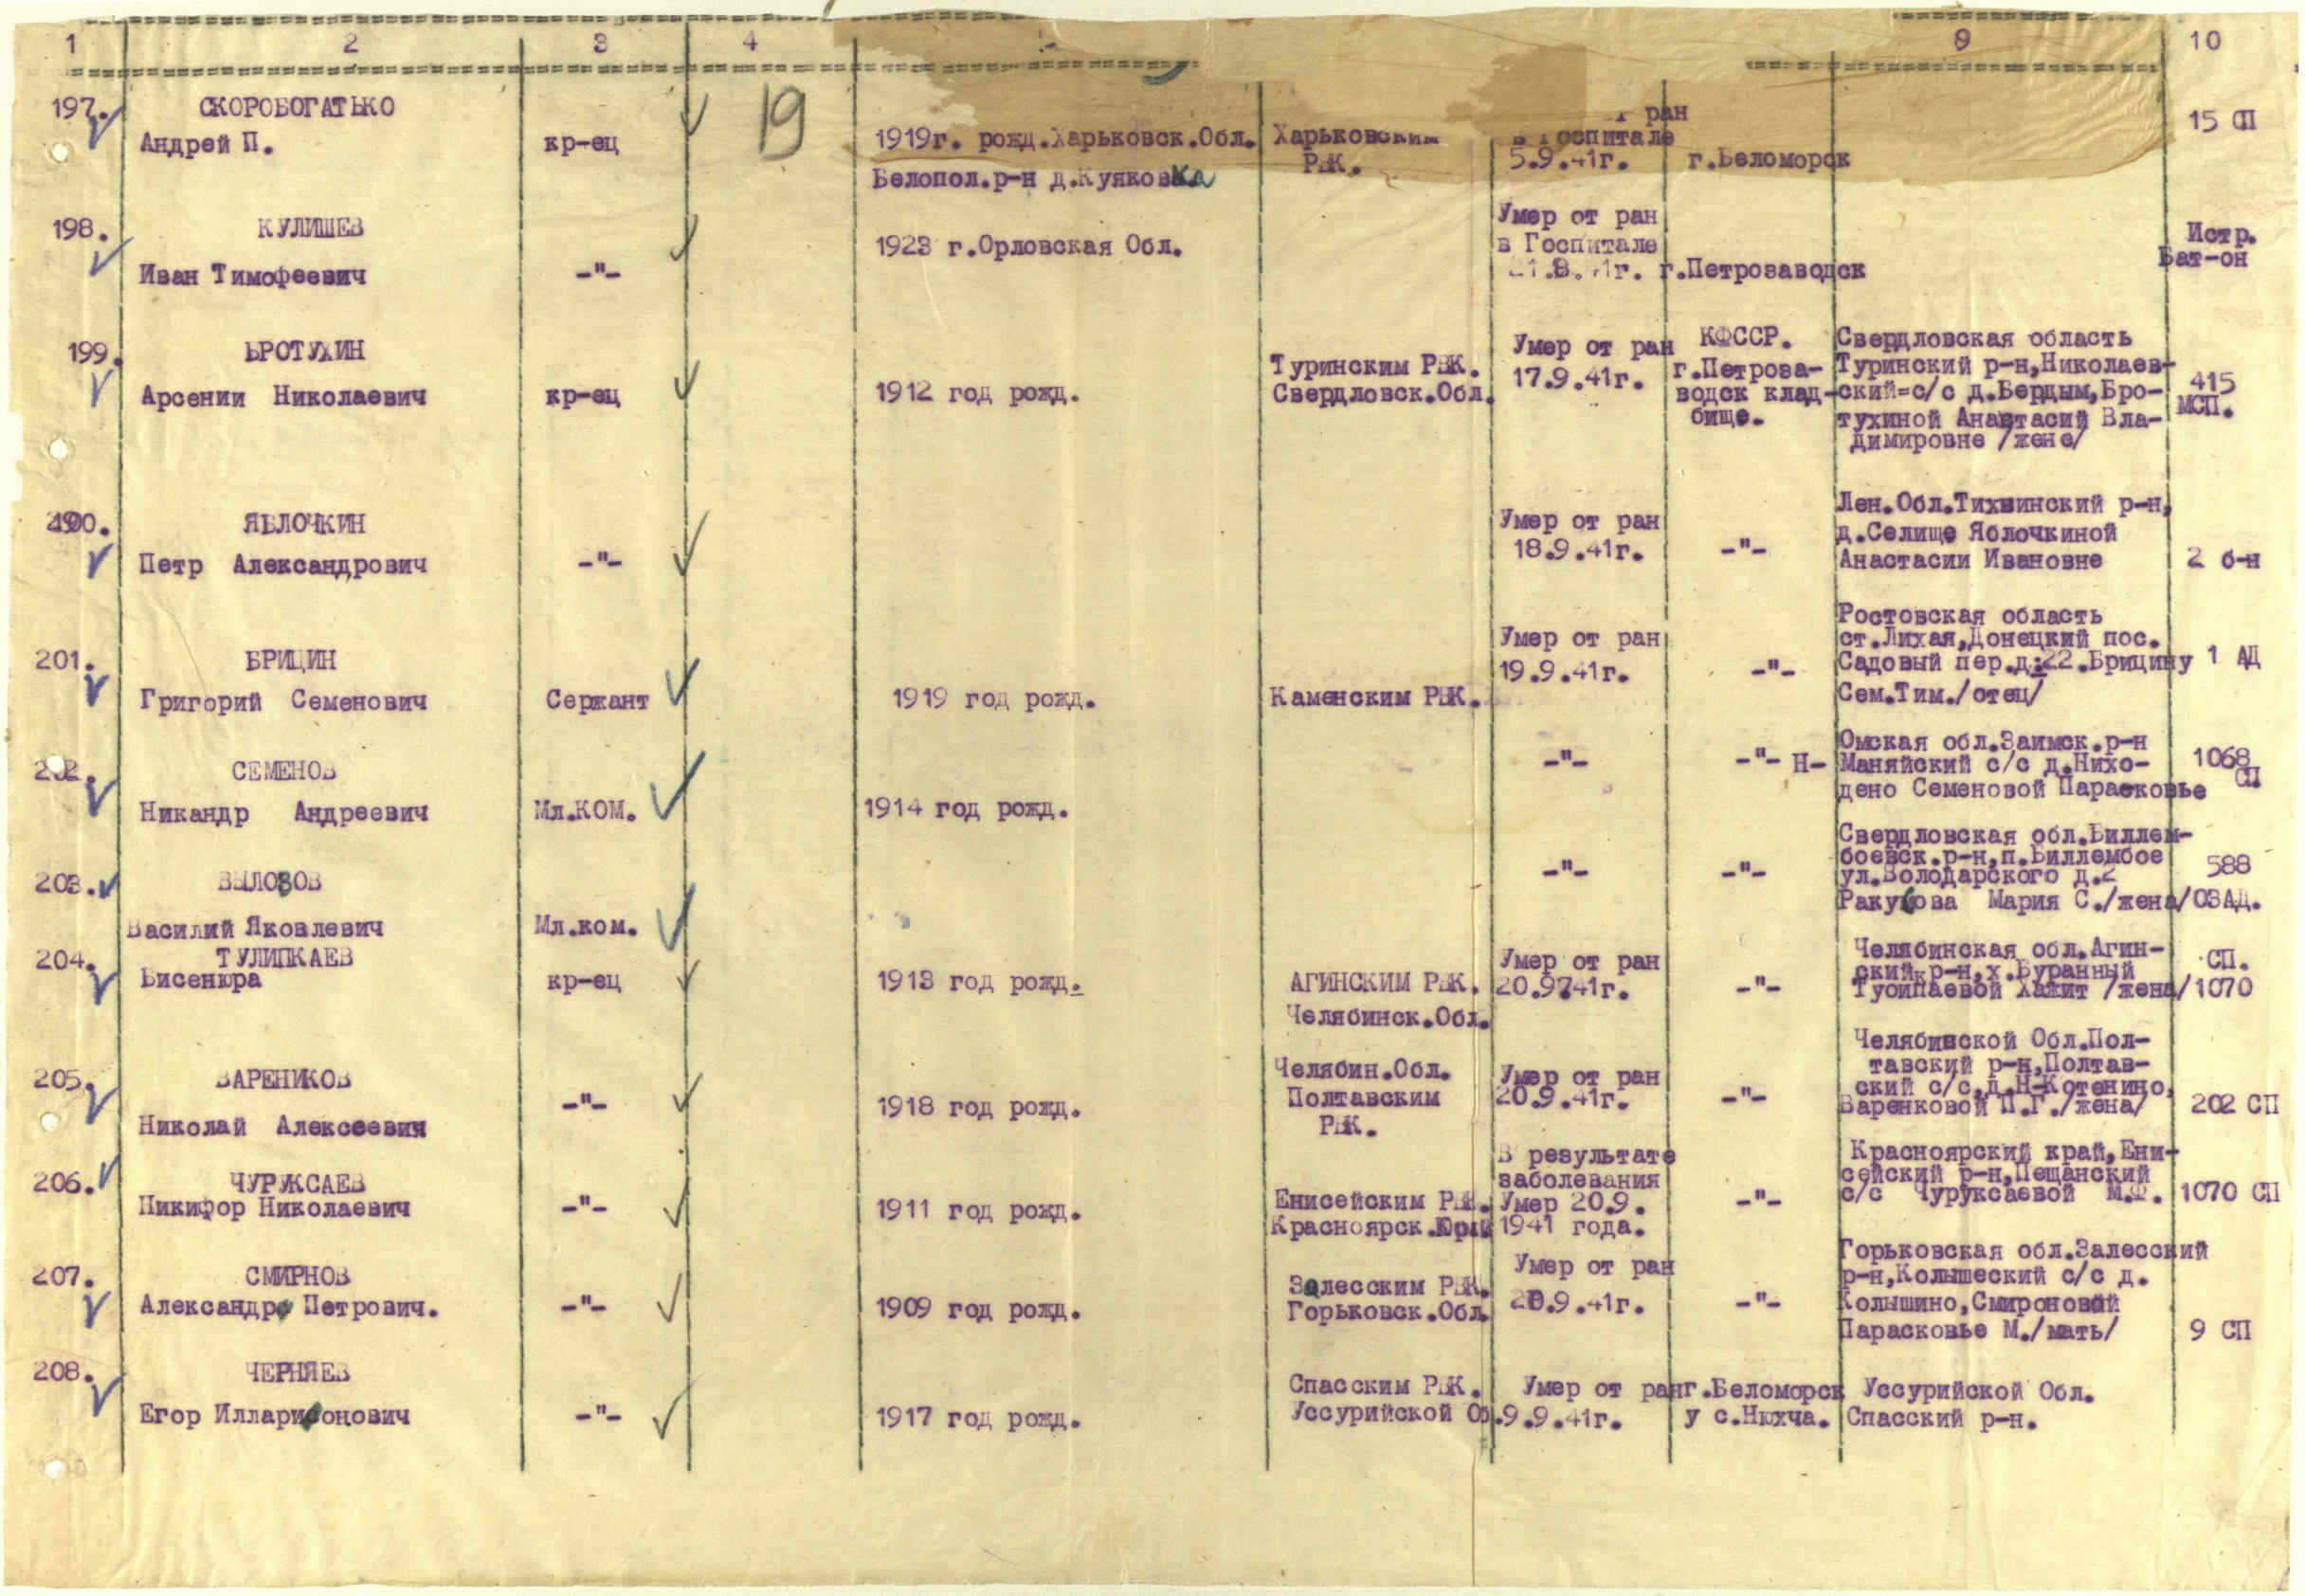 1 2 3 4 9 10
197. СКОРОБОГАТЬКО
Андрей П. кр-ец 19 1919г. рожд.Харьковск.Обл. Харьковским от ран 15 СП
Белопол.р-н д.Куяковка РВК. в Госпитале
5.9.41г. г.Беломорск
198. КУЛИШЕВ 1923 г.Орловская Обл. Умер от ран Истр.
Иван Тимофеевич -"- в Госпитале Бат-он
г.Петрозаводск
199. БРОТУХИН Туринским РВК. Умер от ран КФССР. Свердловская область
Арсении Николаевич кр-ец 1912 год рожд. Свердловск.Обл. 17.9.41г. г.Петроза- Туринский р-н,Николаев- 415
водск клад- ский=с/с д.Бердым,Бро- МСП.
бище. тухиной Анастасий Вла-
димировне /жене/
200. ЯБЛОЧКИН Умер от ран Лен.Обл.Тихвинский р-н,
Петр Александрович -"- 18.9.41г. -"- д.Селище Яблочкиной
Анастасии Ивановне 2 б-н
201. БРИЦИН Умер от ран Ростовская область
Григорий Семенович Сержант 1919 год рожд. Каменским РВК. 19.9.41г. -"- ст.Лихая,Донецкий пос.
Садовый пер.д.22.Брицину 1 АД
Сем.Тим./отец/
202. СЕМЕНОВ -"- -"- Н- Омская обл.Заимск.р-н
Никандр Андреевич Мл.КОМ. 1914 год рожд. Маняйский с/с д.Нихо- 1068
дено Семеновой Парасковье СП
203. ВЫЛОЗОВ -"- -"- Свердловская обл.Биллем-
Василий Яковлевич Мл.ком. боевск.р-н,п.Биллембое 588
ул.Володарского д.2
Мария С./жена/ ОЗАД.
204. ТУЛИПКАЕВ Умер от ран Челябинская обл.Агин- СП.
Бисенюра кр-ец 1913 год рожд. АГИНСКИМ РВК. 20.9.41г. -"- ский р-н,х.Буранный
Челябинск.Обл. Тусипаевой Хажит /жена/ 1070
205. ВАРЕНИКОВ Челябин.Обл. Умер от ран Челябинской Обл.Пол-
Николай Алексеевич -"- 1918 год рожд. Полтавским 20.9.41г. -"- тавский р-н,Полтав-
РВК. ский с/с,д.Н-Котенино,
Варенковой П.Г./жена/ 202 СП
206. ЧУРУКСАЕВ В результате Красноярский край,Ени-
Никифор Николаевич -"- 1911 год рожд. Енисейским РВК. заболевания -"- сейский р-н,Пещанский
Красноярск. Умер 20.9. с/с Чуруксаевой М.Ф. 1070 СП
1941 года.
207. СМИРНОВ Залесским РВК. Умер от ран Горьковская обл.Залесский
Александр Петрович. -"- 1909 год рожд. Горьковск.Обл. 20.9.41г. -"- р-н,Колышеский с/с д.
Колышино,Смироновой
Парасковье М./мать/ 9 СП
208. ЧЕРНЯЕВ Спасским РВК. Умер от ран г.Беломорск Уссурийской Обл.
Егор Илларионович -"- 1917 год рожд. Уссурийской Об. 9.9.41г. у с.Нюхча. Спасский р-н.